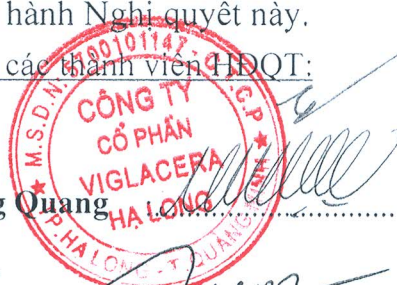 hành Nghị quyết này.
các thành viên HĐQT:
M.S.D.N: 5700101147 - C.T.C.P
CÔNG TY
CỔ PHẦN
VIGLACERA
HẠ LONG
g Quang
P. HẠ LONG - T. QUẢNG NINH